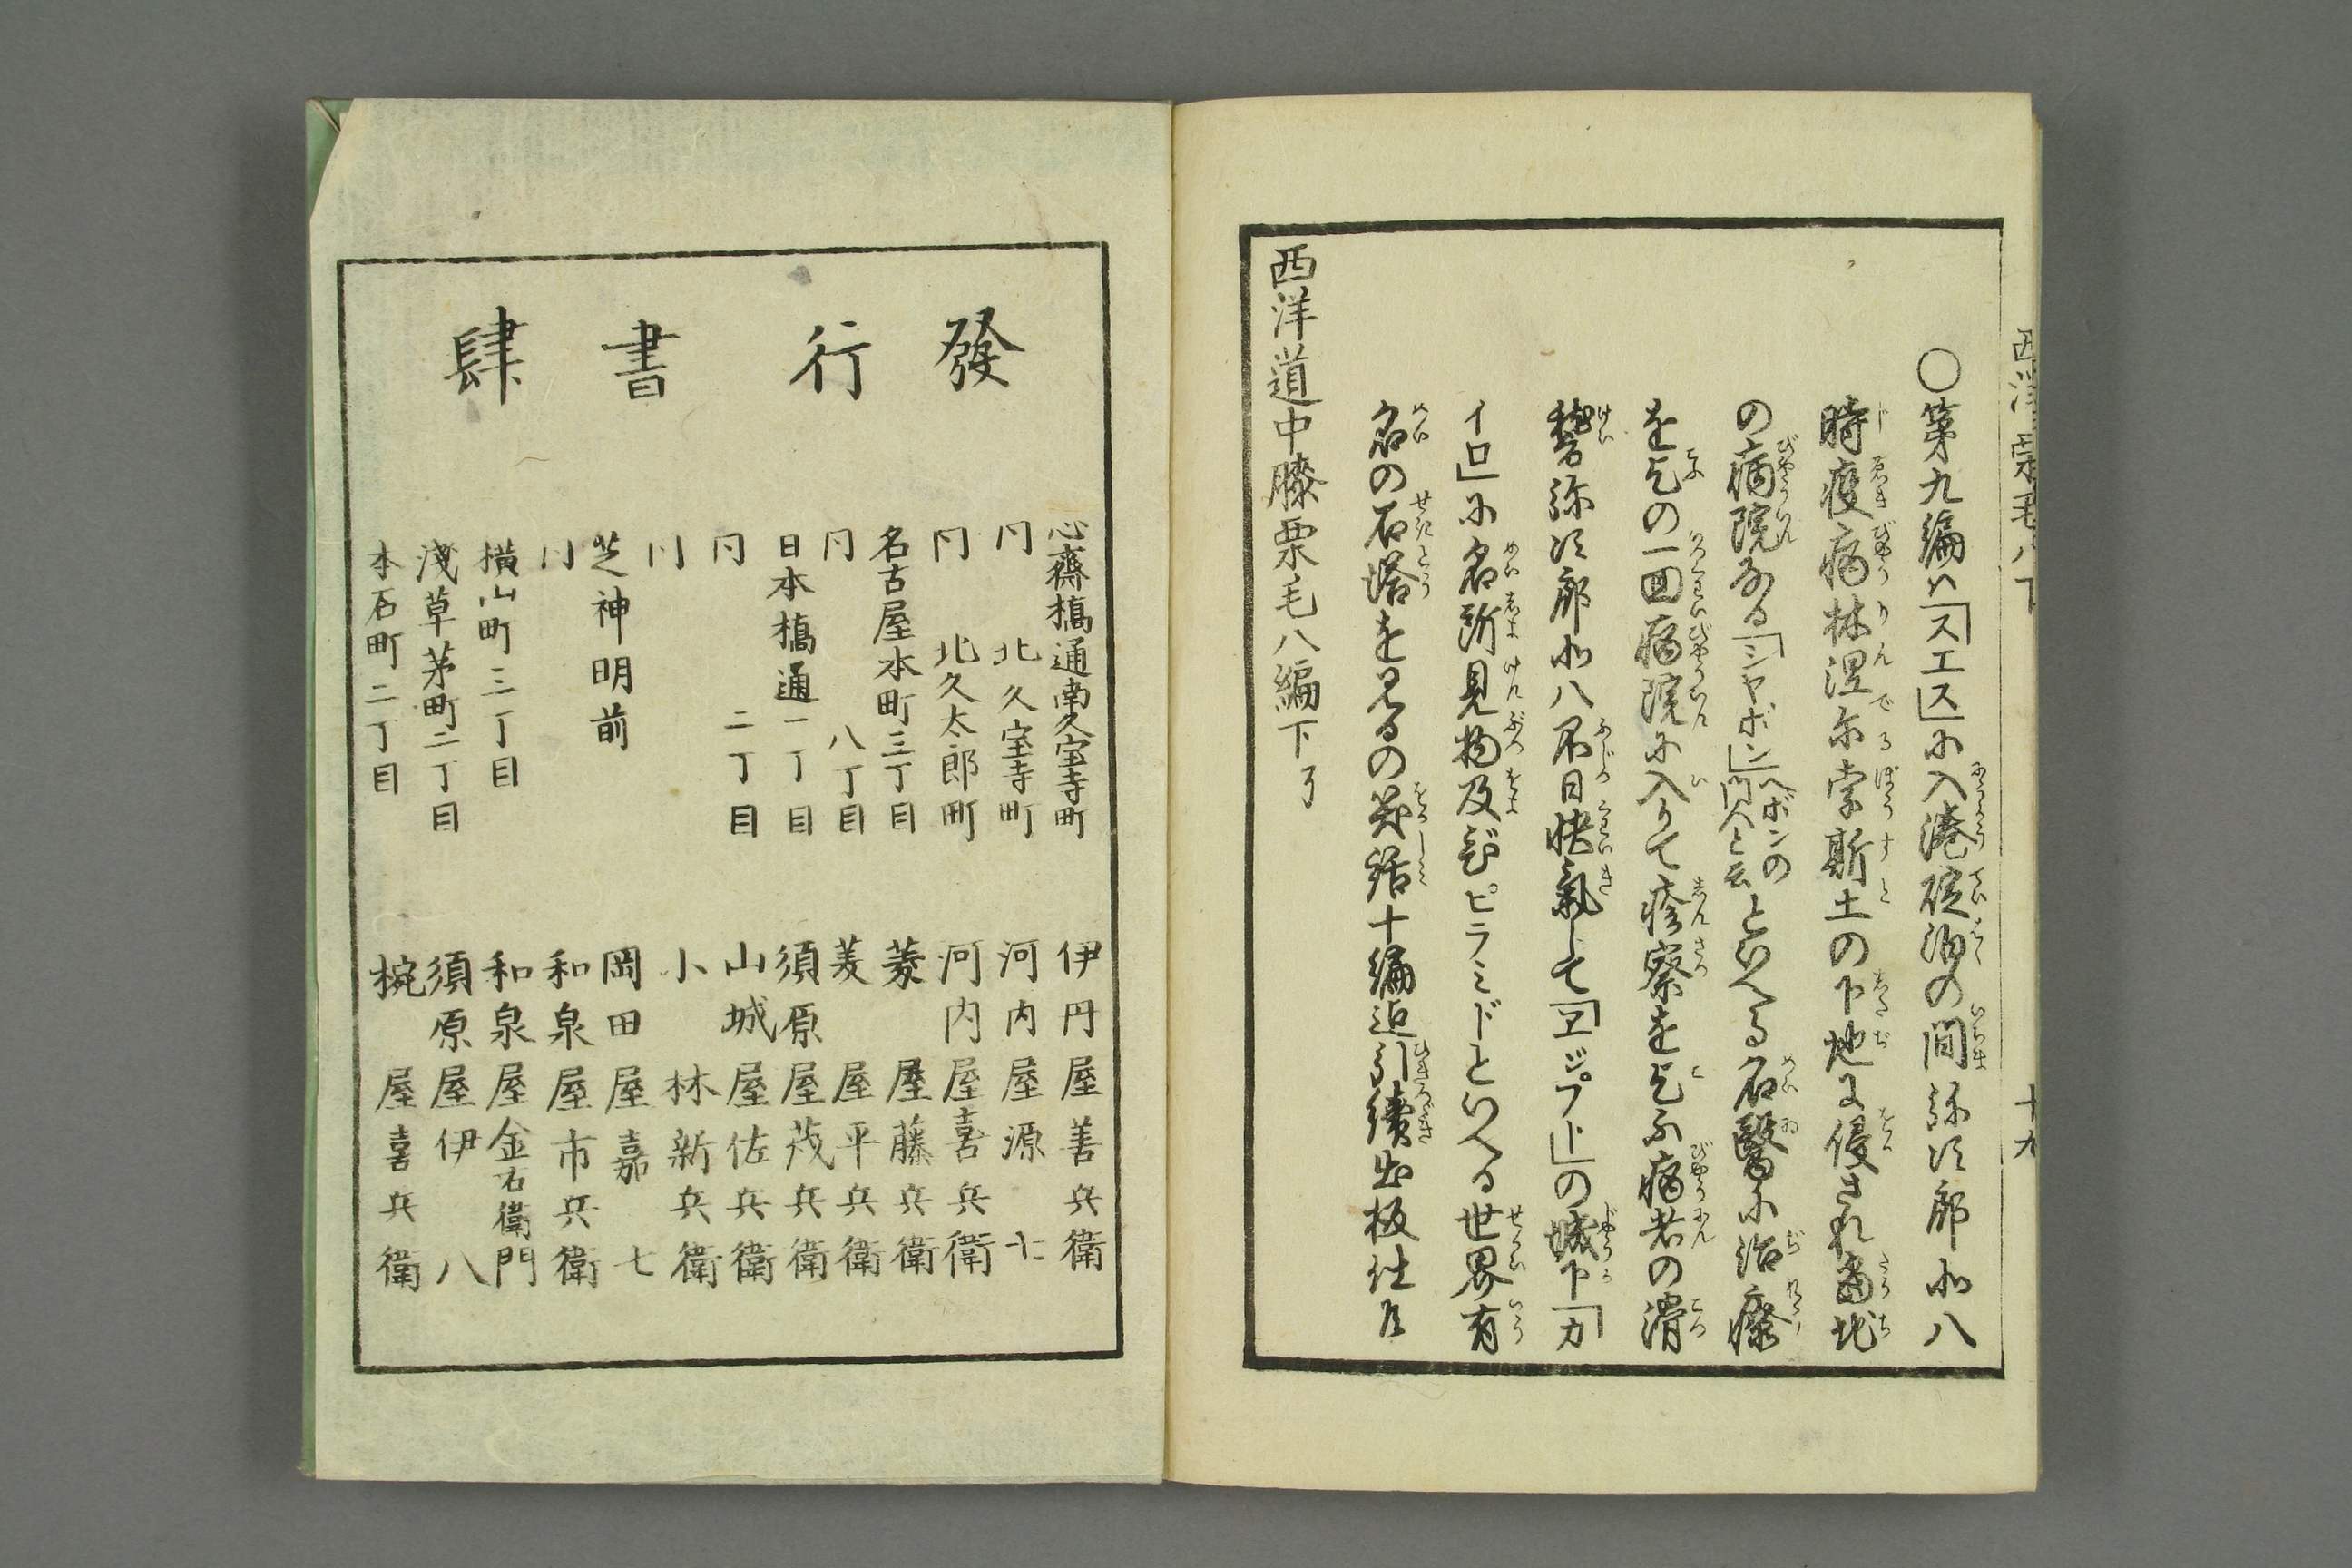 〇第九編ハ「スエス」に入港碇泊の間弥次郎北八
時疫病林涅尔索斯土の下地に侵され當地
の病院ある「シヤボン」ヘボンの門人と云といへる名醫に治療
を乞の一回病院に入りて疹察を乞ふ病者の滑
稽弥次郎北八不日快氣して「ヱジプト」の城下「カ
イロ」に名所見物及びピラミドといへる世界有
名の石塔を見るの
十編迄引續出板仕候
西洋道中膝栗毛八編下了
發行書肆
心齋橋通南久宝寺町 伊丹屋善兵衛
同 北久宝寺町 河内屋源七
同 北久太郎町 河内屋喜兵衛
名古屋本町三丁目 菱屋藤兵衛
同 八丁目 菱屋平兵衛
日本橋通一丁目 須原屋茂兵衛
同 二丁目 山城屋佐兵衛
同 小林新兵衛
芝神明前 岡田屋嘉七
同 和泉屋市兵衛
横山町三丁目 和泉屋金右衛門
淺草茅町二丁目 須原屋伊八
本石町二丁目 椀屋喜兵衛